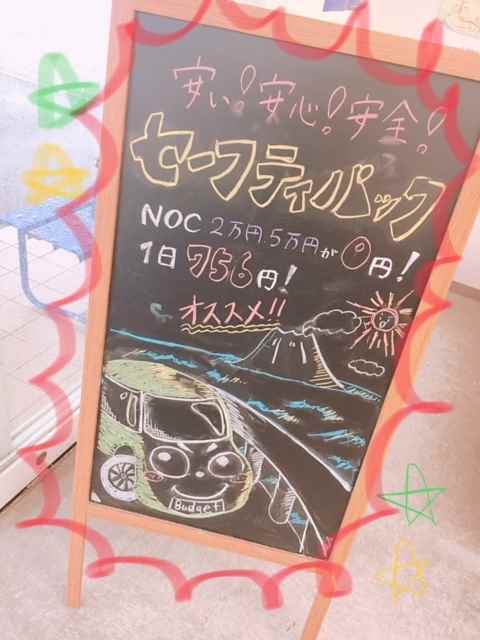 安い!安心!安全!
セーフティパック
NOC 2万円.5万円が0円!
1日756円!
オススメ!!
Budget